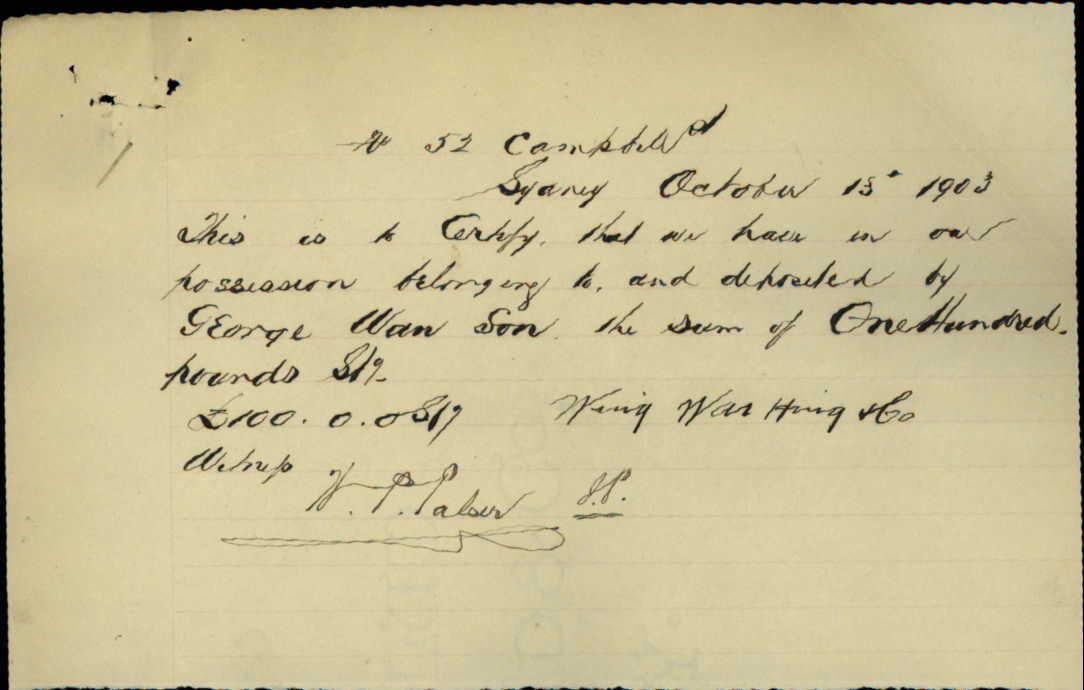 No 52 Campbell St
Sydney October 15th 1903
This is to Certify, that we have in our
possession belonging to, and deposited by
George Wan Son. the sum of One Hundred.
pounds Stg-
£100. 0. 0 Stg Wing War Hing & Co
Witness
W. P. Palser J.P.